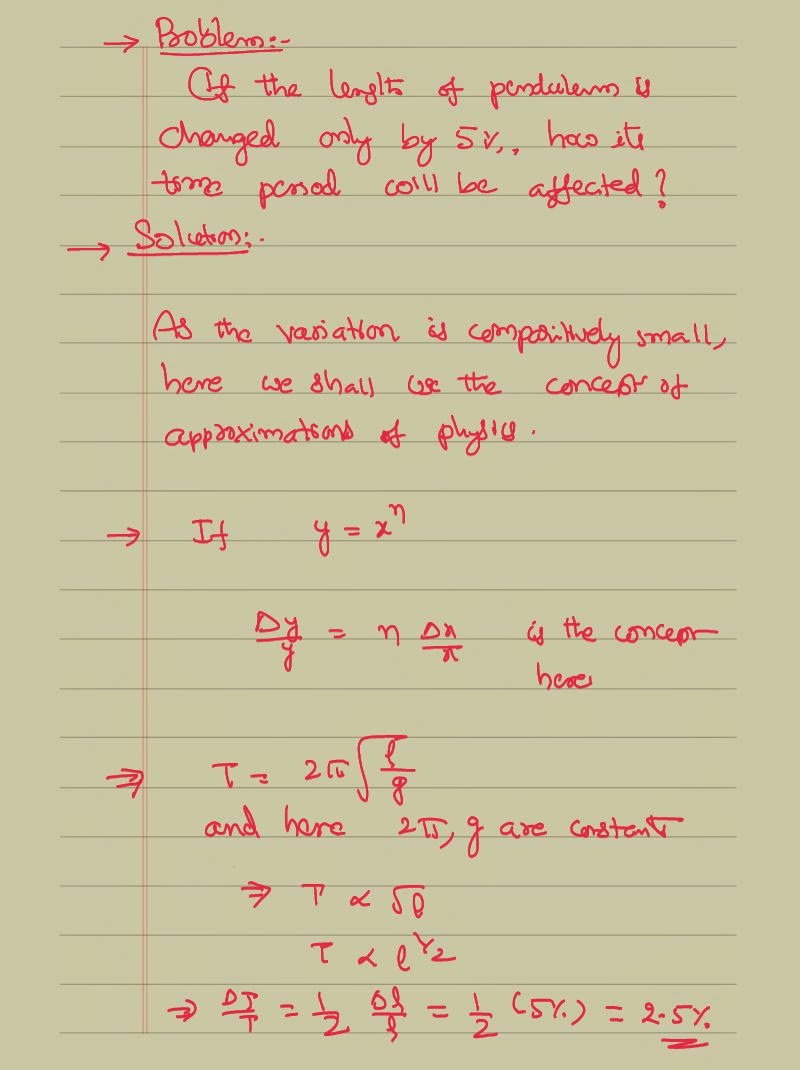 → Problem:-
If the length of pendulum is
changed only by 5%, how its
time period will be affected?
→ Solution:-
As the variation is comparitively small,
here we shall use the concept of
approximations of physics.
→ If y = xⁿ
Δy/y = n Δx/x is the concept
here
⇒ T = 2π√(l/g)
and here 2π, g are constant
⇒ T ∝ √l
T ∝ l^1/2
⇒ ΔT/T = 1/2 Δl/l = 1/2 (5%) = 2.5%